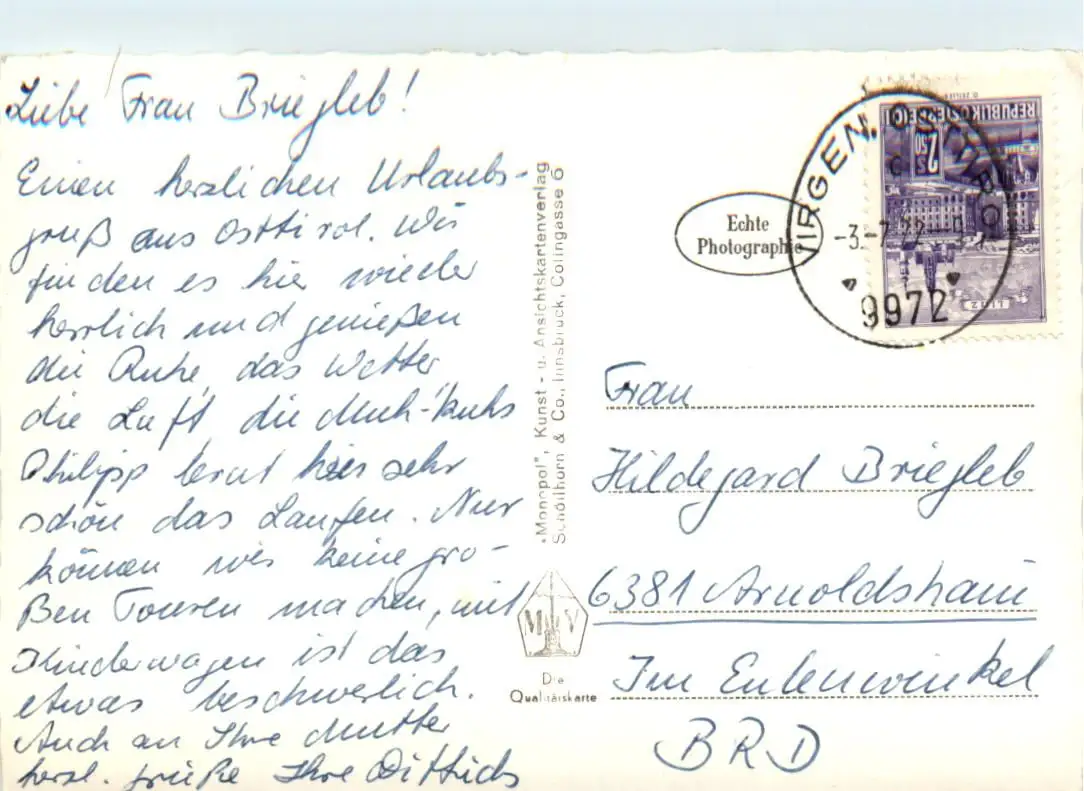 Liebe Frau Briegleb!
Einen herzlichen Urlaubs-
gruß aus Osttirol. Wir
finden es hier wieder
herrlich und genießen
die Ruhe, das Wetter
die Luft die Muh-Kuhs
Philipp lernt hier sehr
schön das Laufen. Nur
können wir keine gro-
ßen Touren machen, mit
Kinderwagen ist das
etwas beschwerlich.
Auch an Ihre Mutter
herzl. Grüße Ihre Dittrichs
"Monopol", Kunst- u. Ansichtskartenverlag
Schöllhorn & Co., Innsbruck, Colingasse 6
M V
Die
Qualitätskarte
Echte
Photographie
VIRGEN, OSTTIROL
c
-3.-7.72
9972
REPUBLIK ÖSTERREICH
S 2.50
LINZ
Frau
Hildegard Briegleb
6381 Arnoldshain
Im Eulenwinkel
BRD